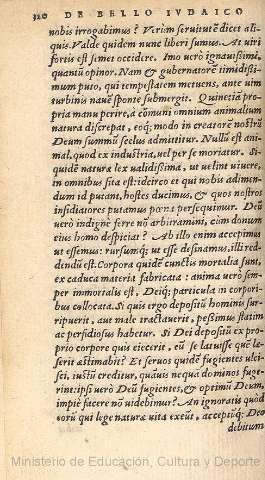 320 DE BELLO IVDAICO
nobis irrogabimus? Verùm seruitutē dicet ali-
quis. Valde quidem nunc liberi sumus. At uiri
fortis est semet occidere. Imo uerò ignauissimi,
quantū opinor. Nam & gubernatorē timidissi-
mum puto, qui tempestatem metuens, ante uim
turbinis nauē sponte submergit. Quinetiā pro-
pria manu perire, à cōmuni omnium animalium
natura discrepat, eoq; modo in creatorē nostrū
Deum summū scelus admittitur. Nullū est ani-
mal, quod ex industria, uel per se moriatur. Si-
quidē naturæ lex ualidissima, ut uelint uiuere,
in omnibus sita est: idcirco et qui nobis adimen-
dum id putant, hostes ducimus, & quos nostros
insidiatores putamus pœna persequimur. Deū
uerò indignè ferre nō arbitramini, cùm donum
eius homo despiciat? Ab illo enim accepimus
ut essemus: rursumq; ut esse desinamus, illi red-
dendū est. Corpora quidē cunctis mortalia sunt,
ex caduca materia fabricata: anima uerò sem-
per immortalis est, Deiq; particula in corpori-
bus collocata. Si quis ergo depositū hominis sur-
ripuerit, aut male tractauerit, pessimus statim
ac perfidiosus habetur. Si Dei depositū ex pro-
prio corpore quis eiecerit, eū se latuisse quē læ-
serit æstimabit? Et seruos quidē fugientes ulci-
sci, iustū creditur, quāuis nequā dominos fuge-
rint: ipsi uerò Deū fugientes, & optimū Deum,
impiè facere nō uidebimur? An ignoratis quòd
eorū qui lege naturæ uita exeūt, acceptūq; Deo
debitum
Ministerio de Educación, Cultura y Deporte